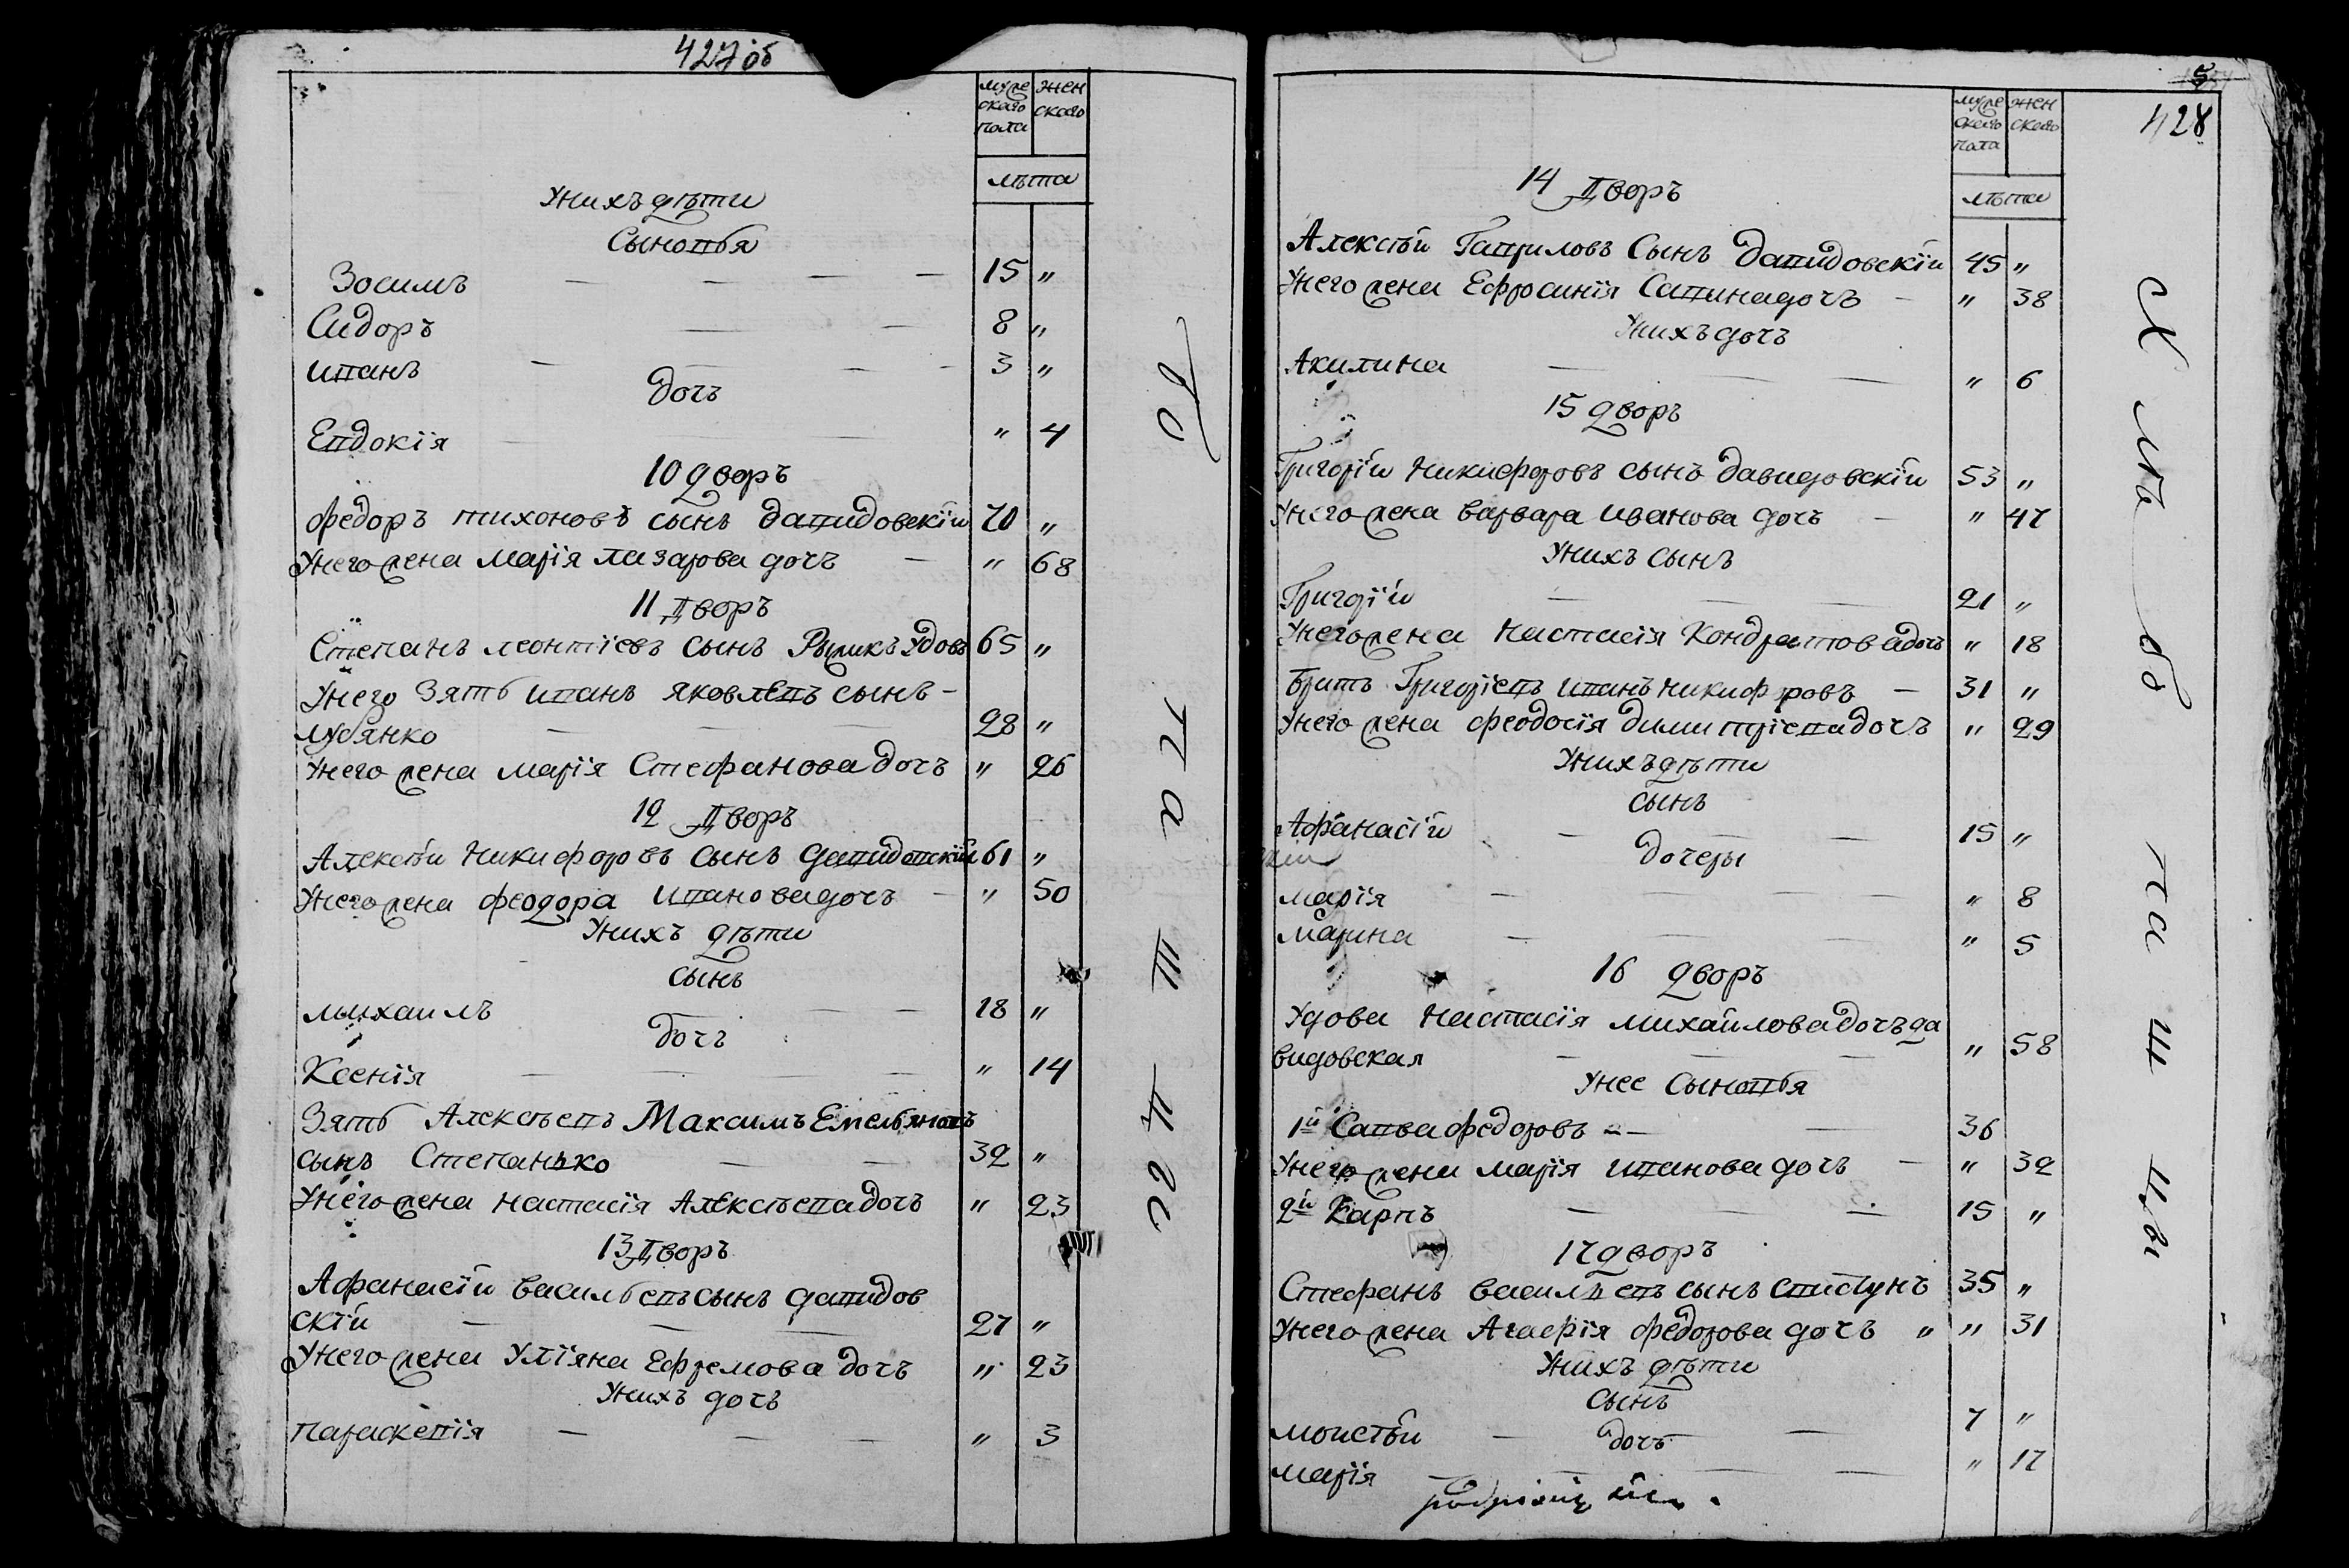 427 об
мужескаго пола
женскаго
лѣта
Унихъ дѣти
Сыновья
Зосимъ — — — — 15 "
Сидоръ — — 8 "
иванъ — — — — 3 "
дочь
Евдокія — — " 4
10 дворъ
федоръ тихоновъ сынъ давидовскій 70 "
Унего жена марія лазарова дочь — " 68
11 Дворъ
Степанъ леонтіевъ сынъ Рыжикъ Удовъ 65 "
Унего Зять иванъ яковлевъ сынъ —
лубянко — — 28 "
Унего жена марія Стефанова дочь " 26
12 Дворъ
Алексѣй Никифоровъ Сынъ давидовскій 61 "
Унего жена феодора иванова дочь — " 50
Унихъ дѣти
сынъ
михаилъ — — 18 "
дочь
Ксенія — — — " 14
Зять Алексѣевъ Максимъ Емельяновъ
сынъ Степанько — — 32 "
Унего жена настасія Алексѣева дочь " 23
13 Дворъ
Афанасій васильевъ сынъ давидов
скій — — — 27 "
Унего жена Уліяна Ефремова дочь " 23
Унихъ дочь
параскевія — — — " 3
го
п а в ч ес
5
428
мужескаго пола
женскаго
лѣта
14 Дворъ
Алексѣй Гавриловъ Сынъ давидовскій 45 "
Унего жена Ефросинія Савина дочь — " 38
Унихъ дочь
Акилина — — — " 6
15 дворъ
Григорій Никифоровъ сынъ давидовскій 53 "
Унего жена варвара иванова дочь — " 47
Унихъ сынъ
Григорій — — — 21 "
Унего жена настасія Кондратова дочь " 18
братъ Григоріевъ иванъ никифоровъ — 31 "
Унего жена феодосія димитріева дочь " 29
Унихъ дѣти
сынъ
Афанасій — — — 15 "
дочеры
марія — — — — " 8
марина — — — " 5
16 дворъ
Удова Настасія михайлова дочь да
видовская — — — " 58
Унее Сыновья
1й Савва федоровъ — — 36
Унего жена марія иванова дочь — " 32
2й Карпъ — — — 15 "
17 дворъ
Стефанъ васильевъ сынъ Свистунъ 35 "
Унего жена Агафія федорова дочь " " 31
Унихъ дѣти
сынъ
моисѣй — — 7 "
дочь
марія — — — — " 17